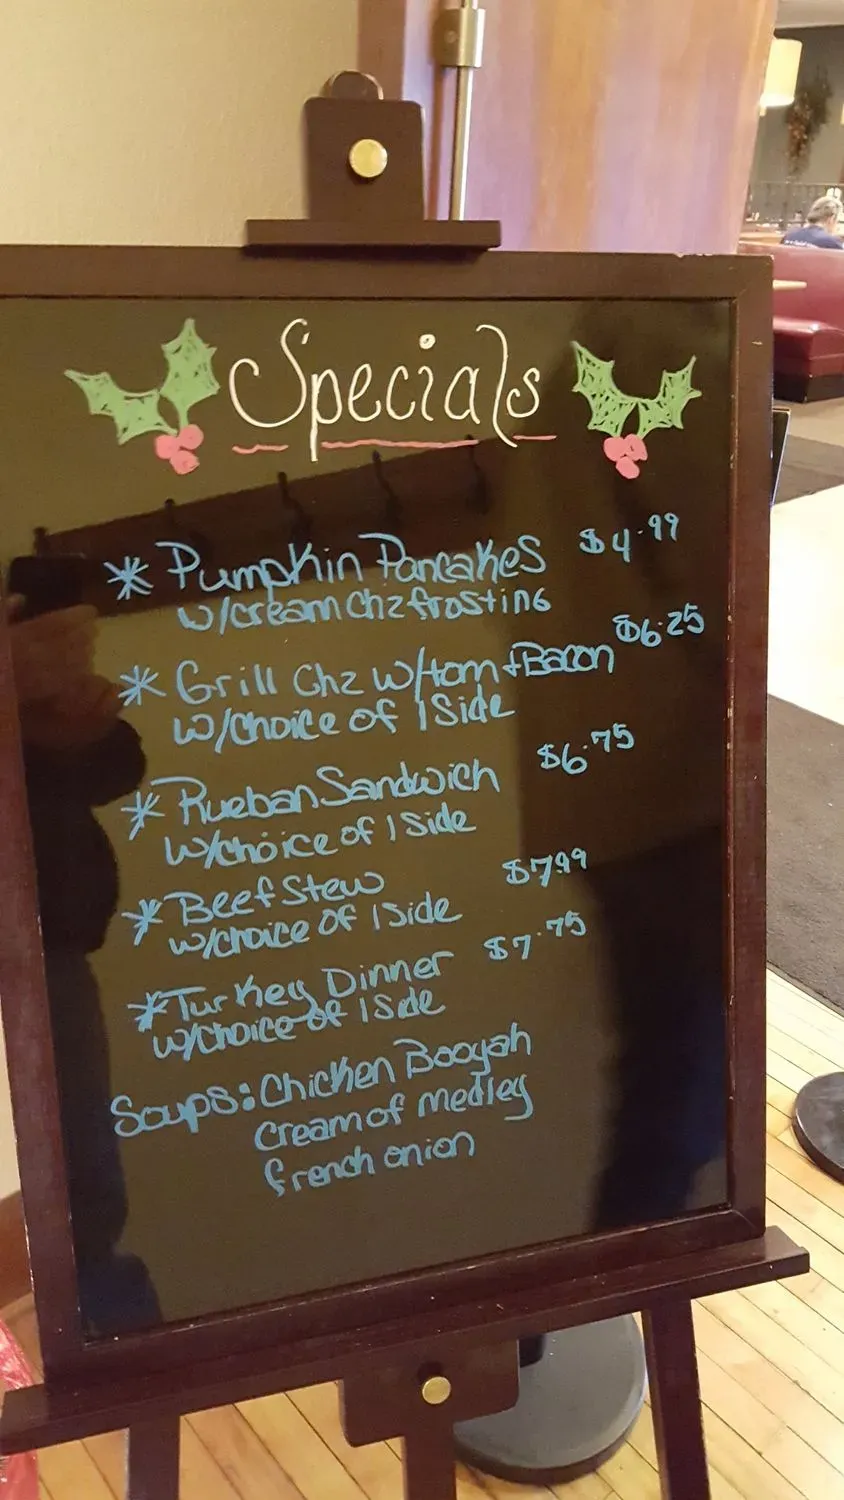 Specials
* Pumpkin Pancakes $4.99
w/cream chz frosting
* Grill Chz w/Ham + Bacon $6.25
w/choice of 1 Side
* Rueban Sandwich $6.75
w/choice of 1 side
* Beef Stew $7.99
w/choice of 1 side
* Turkey Dinner $7.75
w/choice of 1 side
Soups: Chicken Booyah
Cream of medley
french onion